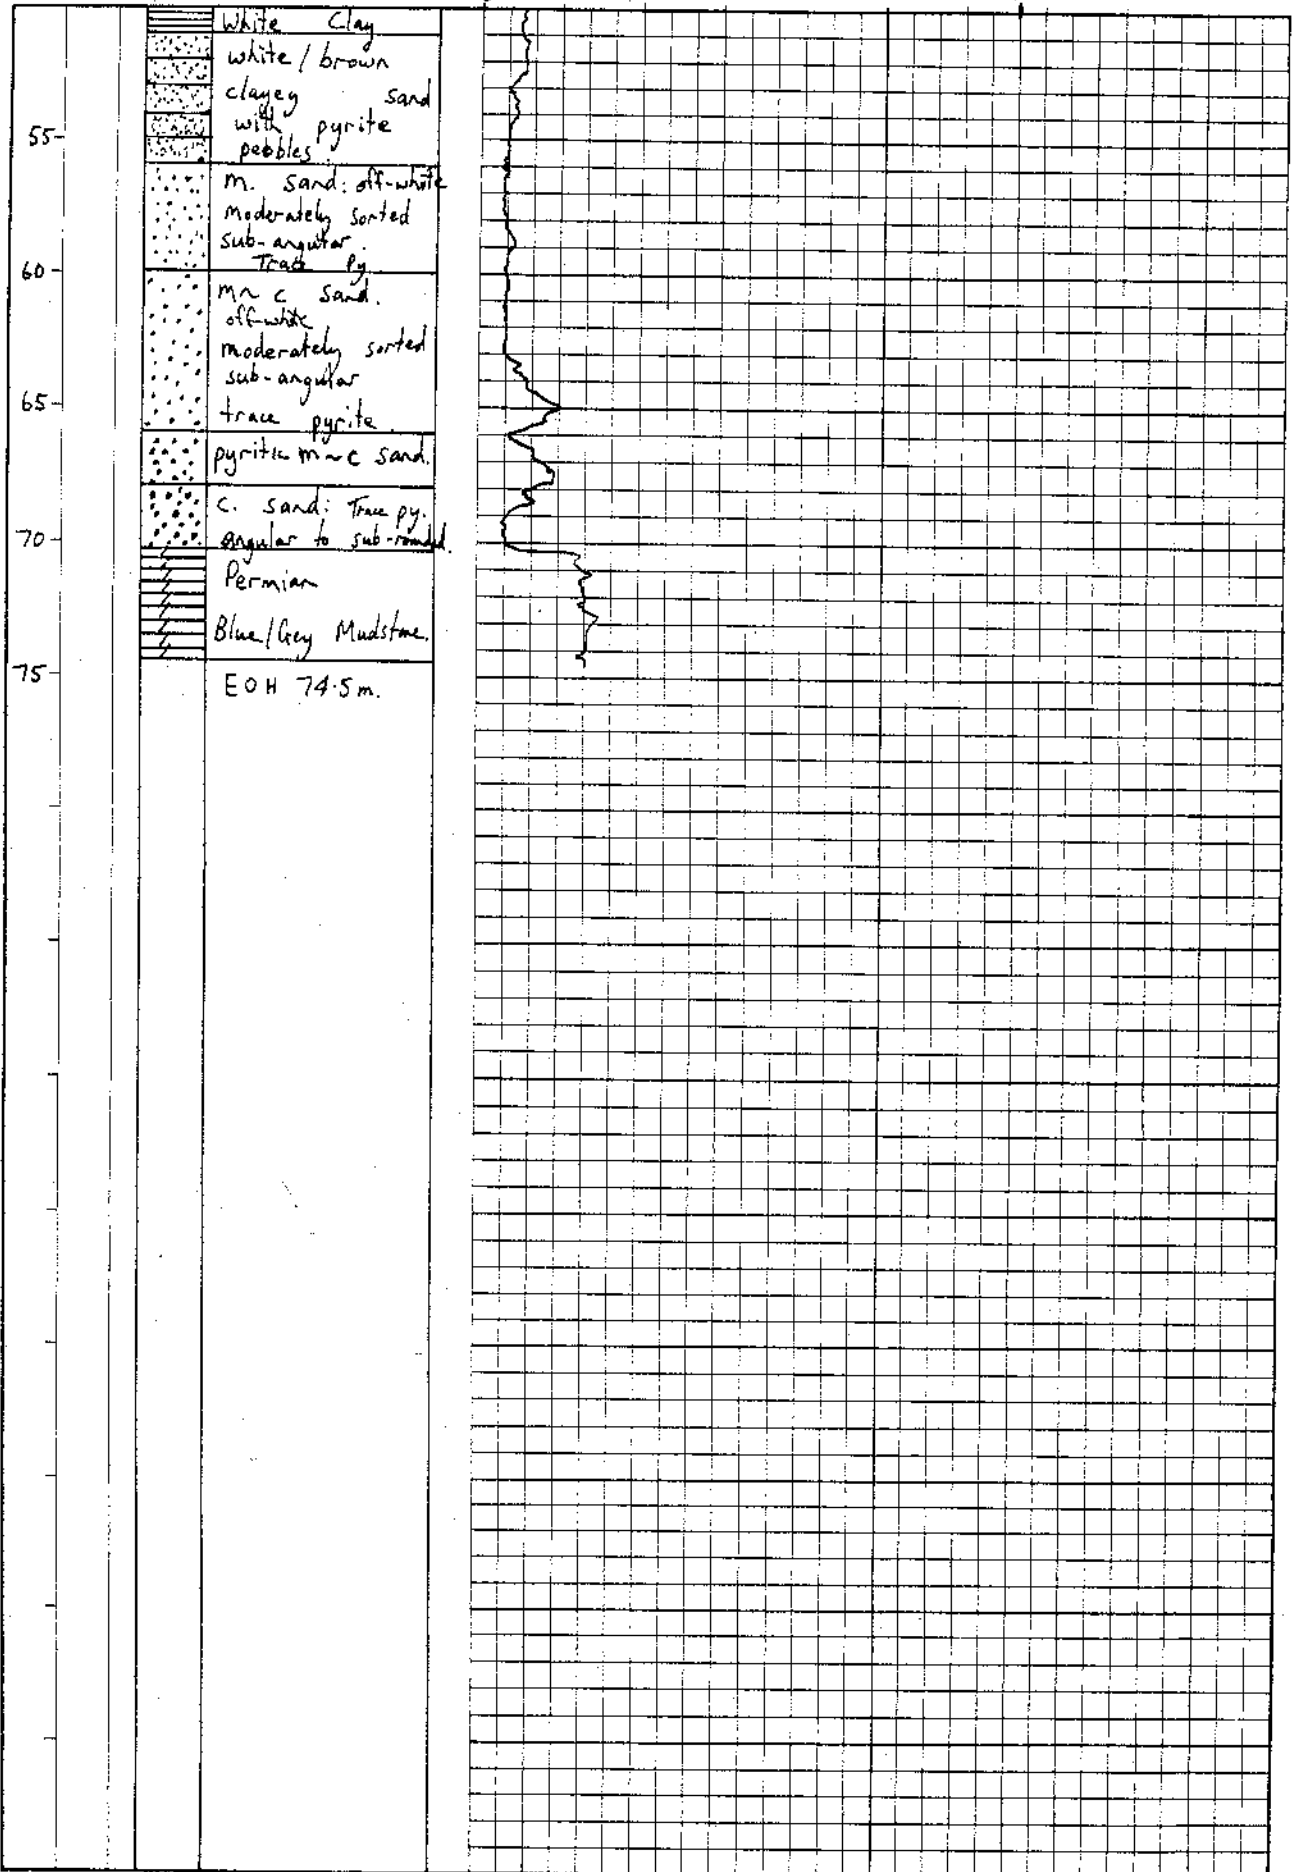 White Clay
white / brown
clayey sand
with pyrite
pebbles.
55
m. sand: off-white
moderately sorted
sub-angular.
Trace Py.
60
m~c sand.
off-white
moderately sorted
sub-angular
65
trace pyrite.
pyritic m~c sand.
c. sand: Trace py.
angular to sub-rounded.
70
Permian
Blue/Grey Mudstone.
75
EOH 74.5m.